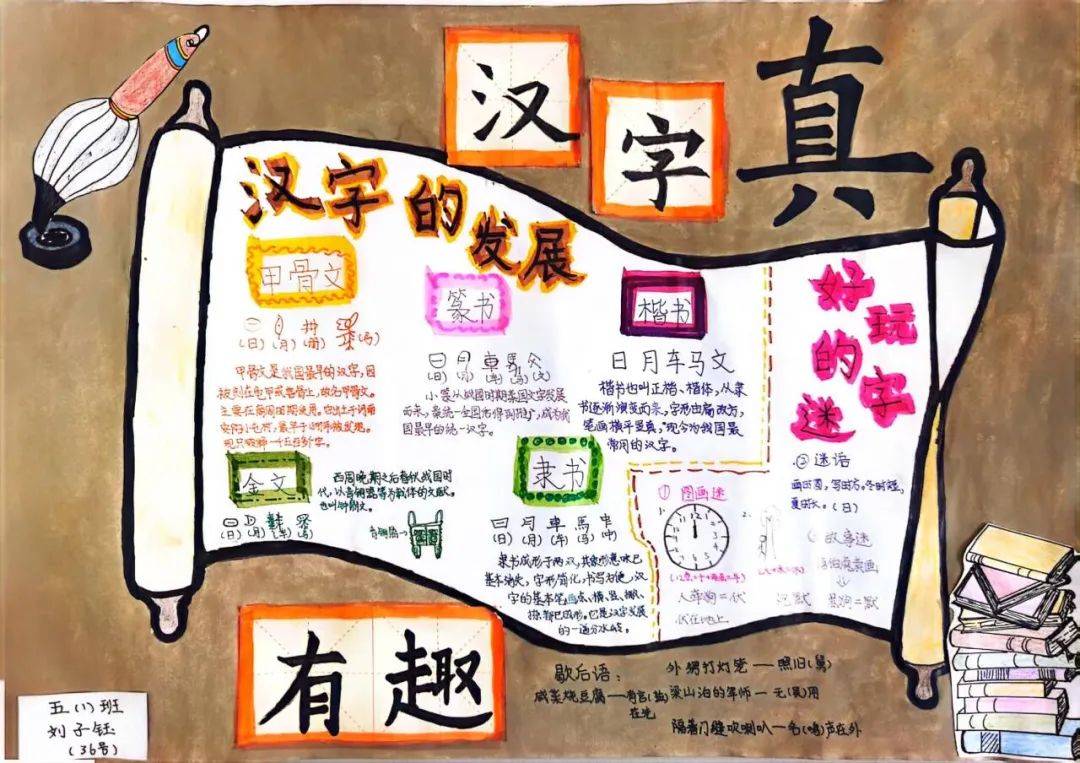 汉字真
有趣
汉字的发展
甲骨文
(日)(月)(马)
甲骨文是我国最早的汉字,因
被刻在龟甲或兽骨上,故名甲骨文。
篆书
(日)(月)(车)(马)(文)
小篆从战国时期秦国文字发展
而来,秦统一全国后得到推广,成为我
国最早的统一汉字。
楷书
日月车马文
楷书也叫正楷、楷体,从隶
书逐渐演变而来,字形由扁改方,
笔画横平竖直,现今为我国最
常用的汉字。
金文
西周晚期之后春秋战国时
代,以青铜器等为载体的文献。
也叫钟鼎文。
(日)(月)(车)(马)
隶书
(日)(月)(车)(马)
隶书成形于两汉,其象形意味已
基本消失,字形简化,书写方便,汉
字的基本笔画点、横、竖、撇、
捺都已成形。它是汉字发展
的一道分水岭。
好玩
的字
迷
① 图画迷
1.
2.
12 1 2 3 4 5 6
人
伏在地上
② 迷语
画时圆,写时方。冬时短,
夏时长。(日)
故事迷
歇后语:
外甥打灯笼——照旧(舅)
咸菜烧豆腐——有言(盐)
在先
梁山泊的军师——无(吴)用
隔着门缝吹喇叭——名(鸣)声在外
五(1)班
刘子钰
(36号)